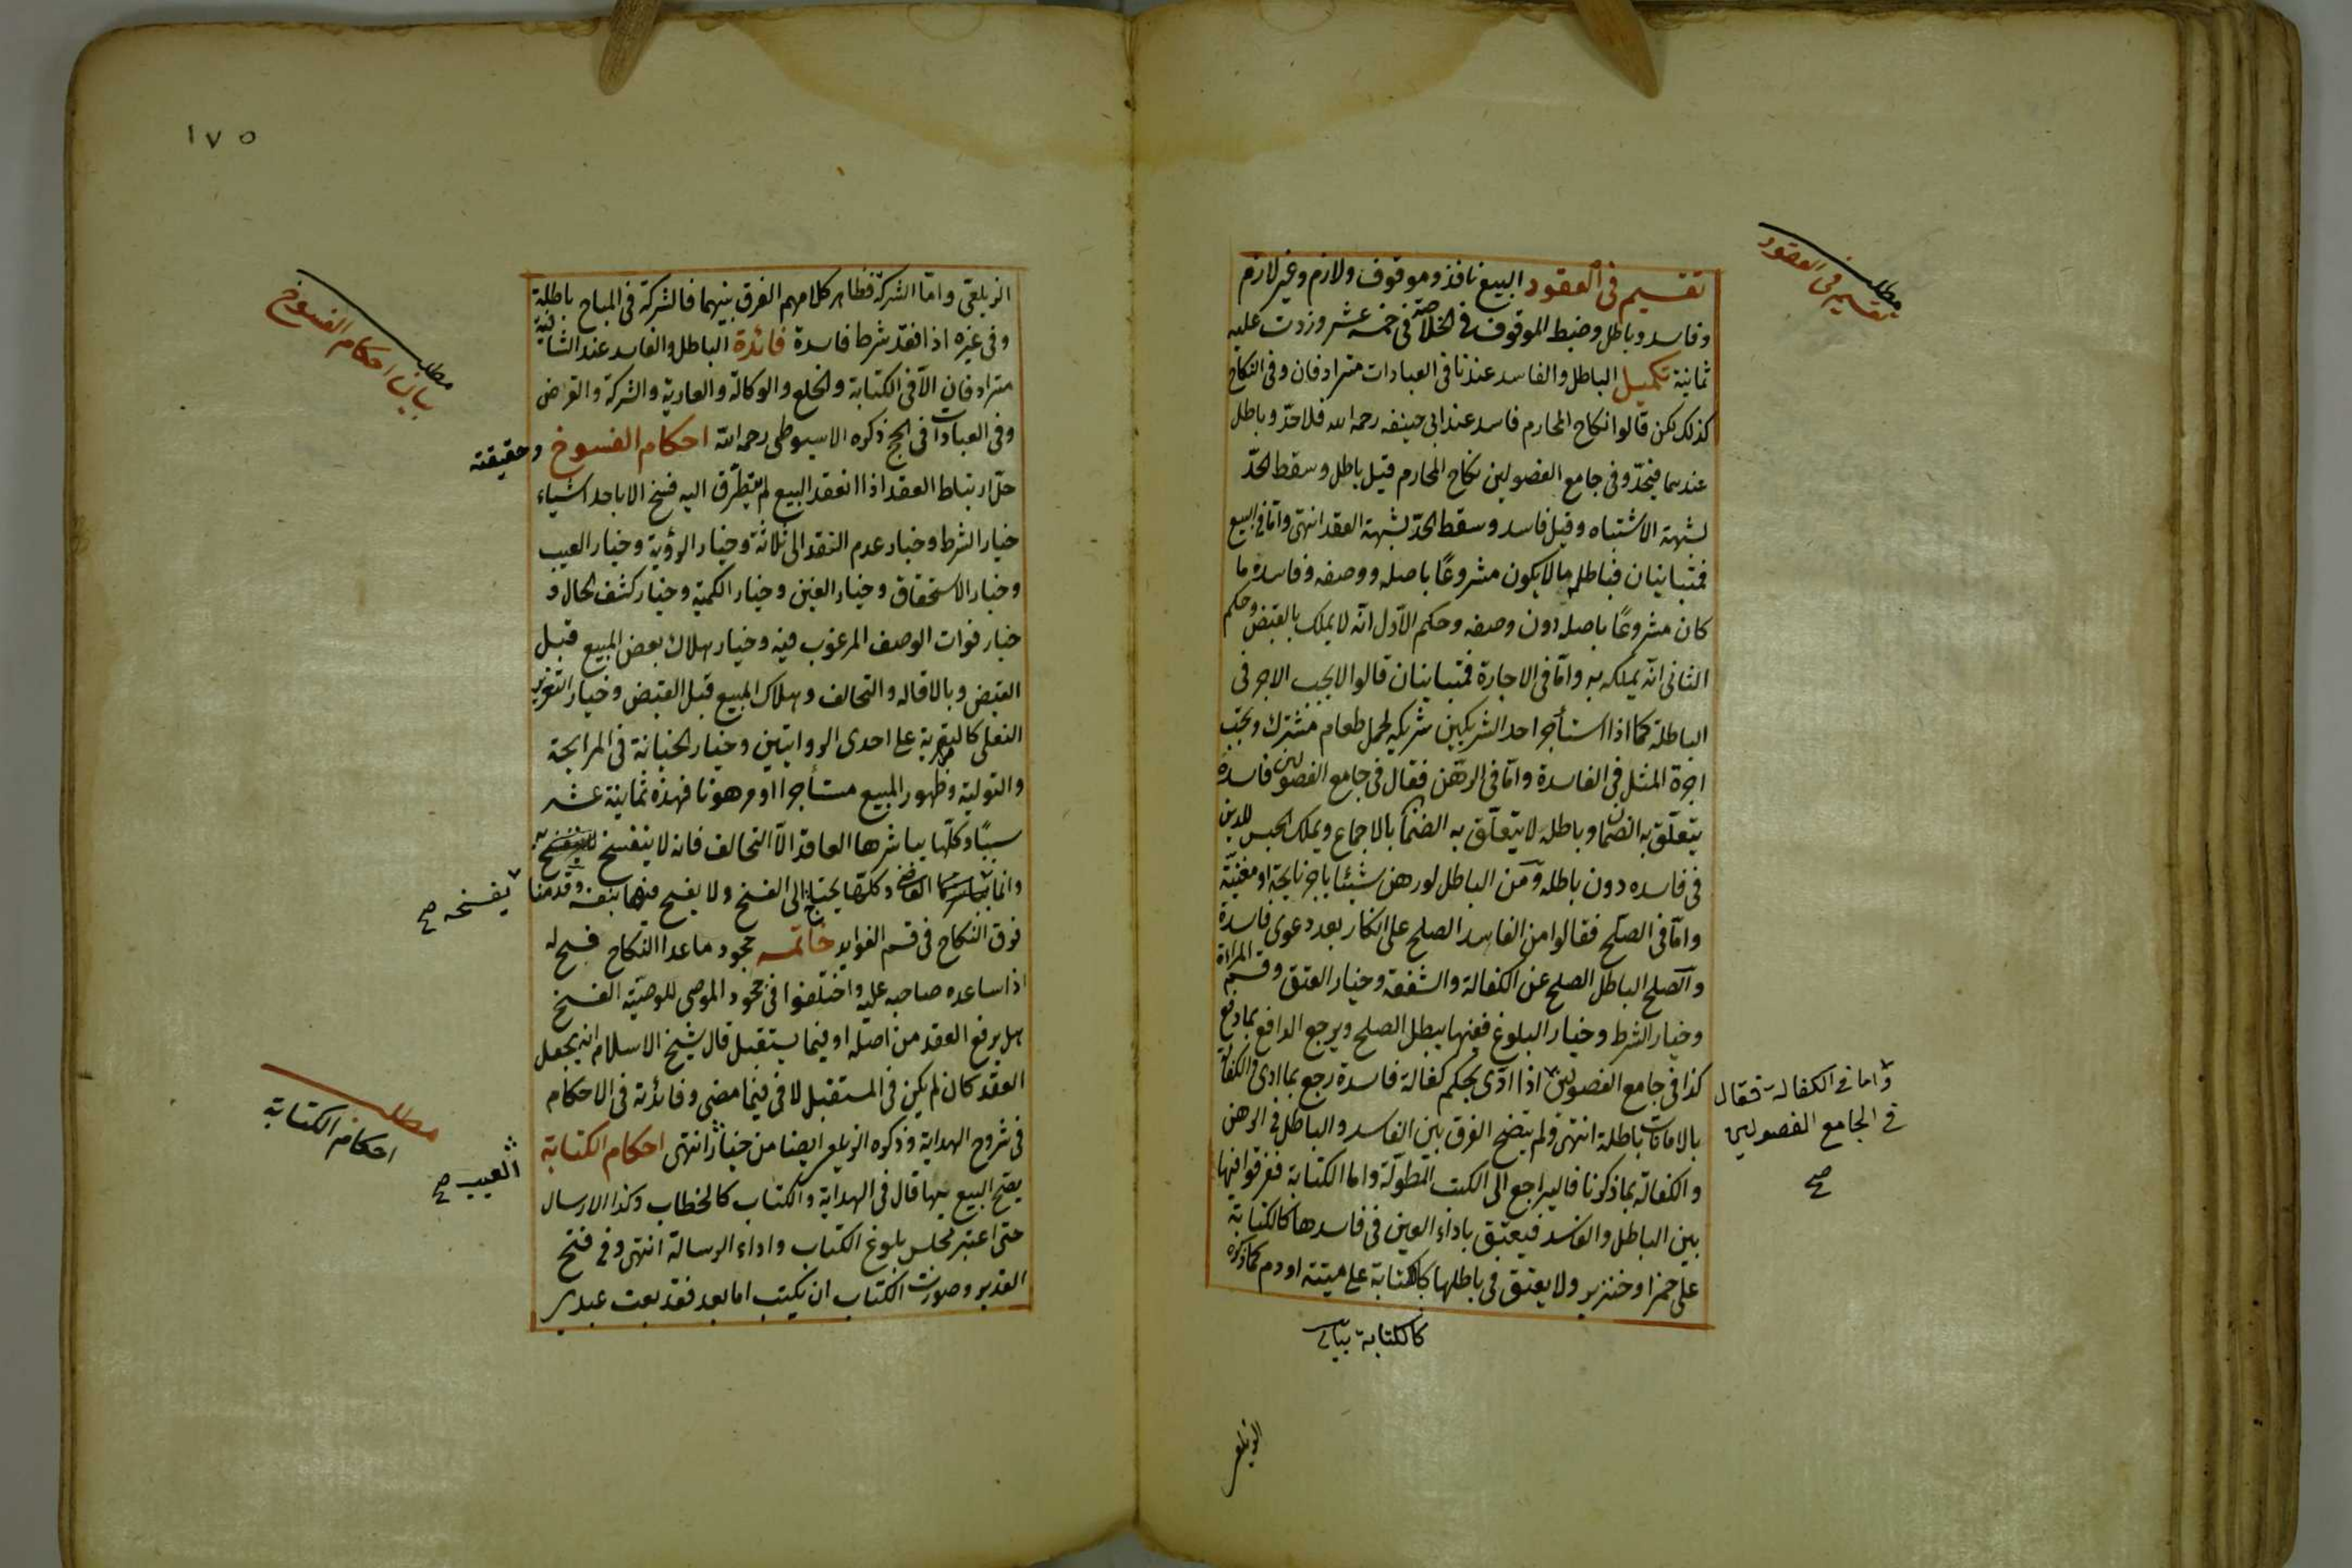 مطلب
تقسيم في العقود
تقسيم في العقود البيع نافذ وموقوف ولازم وغير لازم
وفاسد وباطل وضبط الموقوف في الخلاصة في خمسة عشر وزدت عليه
ثمانية تكميل الباطل والفاسد عندنا في العبادات مترادفان وفي النكاح
كذلك لكن قالوا نكاح المحارم فاسد عند ابي حنيفه رحمه الله فلا حدّ وباطل
عندهما فيحدّ وفي جامع الفصولين نكاح المحارم قيل باطل وسقط الحدّ
لشبهة الاشتباه وقيل فاسد وسقط الحدّ لشبهة العقد انتهى وامّا في البيع
فمتباينان فباطله ما لا يكون مشروعًا باصله ووصفه وفاسده ما
كان مشروعًا باصله دون وصفه وحكم الاوّل انّه لا يملك بالقبض وحكم
الثاني انّه يملكه به وامّا في الاجارة فمتباينان قالوا لا يجب الاجر في
الباطلة كما اذا استأجر احد الشريكين شريكه لحمل طعام مشترك ويجب
اجرة المثل في الفاسدة وامّا في الرهن فقال في جامع الفصولين فاسده
يتعلّق به الضمان وباطله لا يتعلّق به الضمان بالاجماع ويملك الحبس للدين
في فاسده دون باطله ومن الباطل لو رهن شيئا باجر نايحة او مغنيّة
وامّا في الصلح فقالوا من الفاسد الصلح على انكار بعد دعوى فاسدة
والصلح الباطل الصلح عن الكفالة والشفعة وخيار العتق وقسم المراة
وخيار الشرط وخيار البلوغ ففيها يبطل الصلح ويرجع الدافع بما دفع
كذا في جامع الفصولين اذا ادّى بحكم كفالة فاسدة رجع بما ادى والكفالة
وامّا في الكفالة فقال
في الجامع الفصولين
صح
بالامانات باطلة انتهى ولم يتضح الفرق بين الفاسد والباطل في الرهن
والكفالة بما ذكرنا فاليراجع الى الكتب المطوّلة واما الكتابة ففرقوا فيها
بين الباطل والفاسد فيعتق باداء العين في فاسدها كالكتابة
على خمر او خنزير ولا يعتق في باطلها كالكتابة على ميتته او دم كما ذكره
الزيلعي
١٧٥
الزيلعي وامّا الشركة فظاهر كلامهم الفرق بينهما فالشركة في المباح باطلة
وفي غيره اذا فقد شرط فاسدة فائدة الباطل والفاسد عند الشافية
مترادفان الا في الكتابة والخلع والوكالة والعارية والشركة والقراض
وفي العبادات في الحج ذكره الاسيوطي رحمه الله احكام الفسوخ وحقيقته
مطلب
بيان احكام الفسوخ
حل ارتباط العقد اذا انعقد البيع لم يتطرّق اليه فسخ الا باحد اشياء
خيار الشرط وخيار عدم النقد الى ثلاثة وخيار الرؤية وخيار العيب
وخيار الاستحقاق وخيار الغبن وخيار الكمية وخيار كشف الحال و
خيار فوات الوصف المرغوب فيه وخيار هلاك بعض المبيع قبل
القبض وبالاقاله والتحالف وهلاك المبيع قبل القبض وخيار التغرير
الفعلي كالتصرية على احدى الروايتين وخيار الخيانة في المرابحة
والتولية وظهور المبيع مستأجرا او مرهونا فهذه ثمانية عشر
سببًا وكلّها يباشرها العاقد الّا التحالف فانه لا ينفسخ به
يفسخه صح
وانما القاضي وكلّها يحتاج الى الفسخ ولا يفسح فيها بنفسه وقدمنا
فرق النكاح في قسم الفوايد خاتمه جحود ما عدا النكاح فسخ له
اذا ساعده صاحبه عليه واختلفوا في جحود الموصي للوصيّة الفسخ
هل يرفع العقد من اصله او فيما يستقبل قال شيخ الاسلام انه يجعل
العقد كان لم يكن في المستقبل لا في فيما مضى وفائدته في الاحكام
في شروح الهداية وذكره الزيلعي ايضا من خيار انتهى احكام الكتابة
العيب صح
مطلب
احكام الكتابة
يصح البيع بها قال في الهداية والكتاب كالخطاب وكذا الارسال
حتى اعتبر مجلس بلوغ الكتاب واداء الرسالة انتهى وفي فتح
القدير وصورت الكتاب ان يكتب اما بعد فقد بعت عبدي